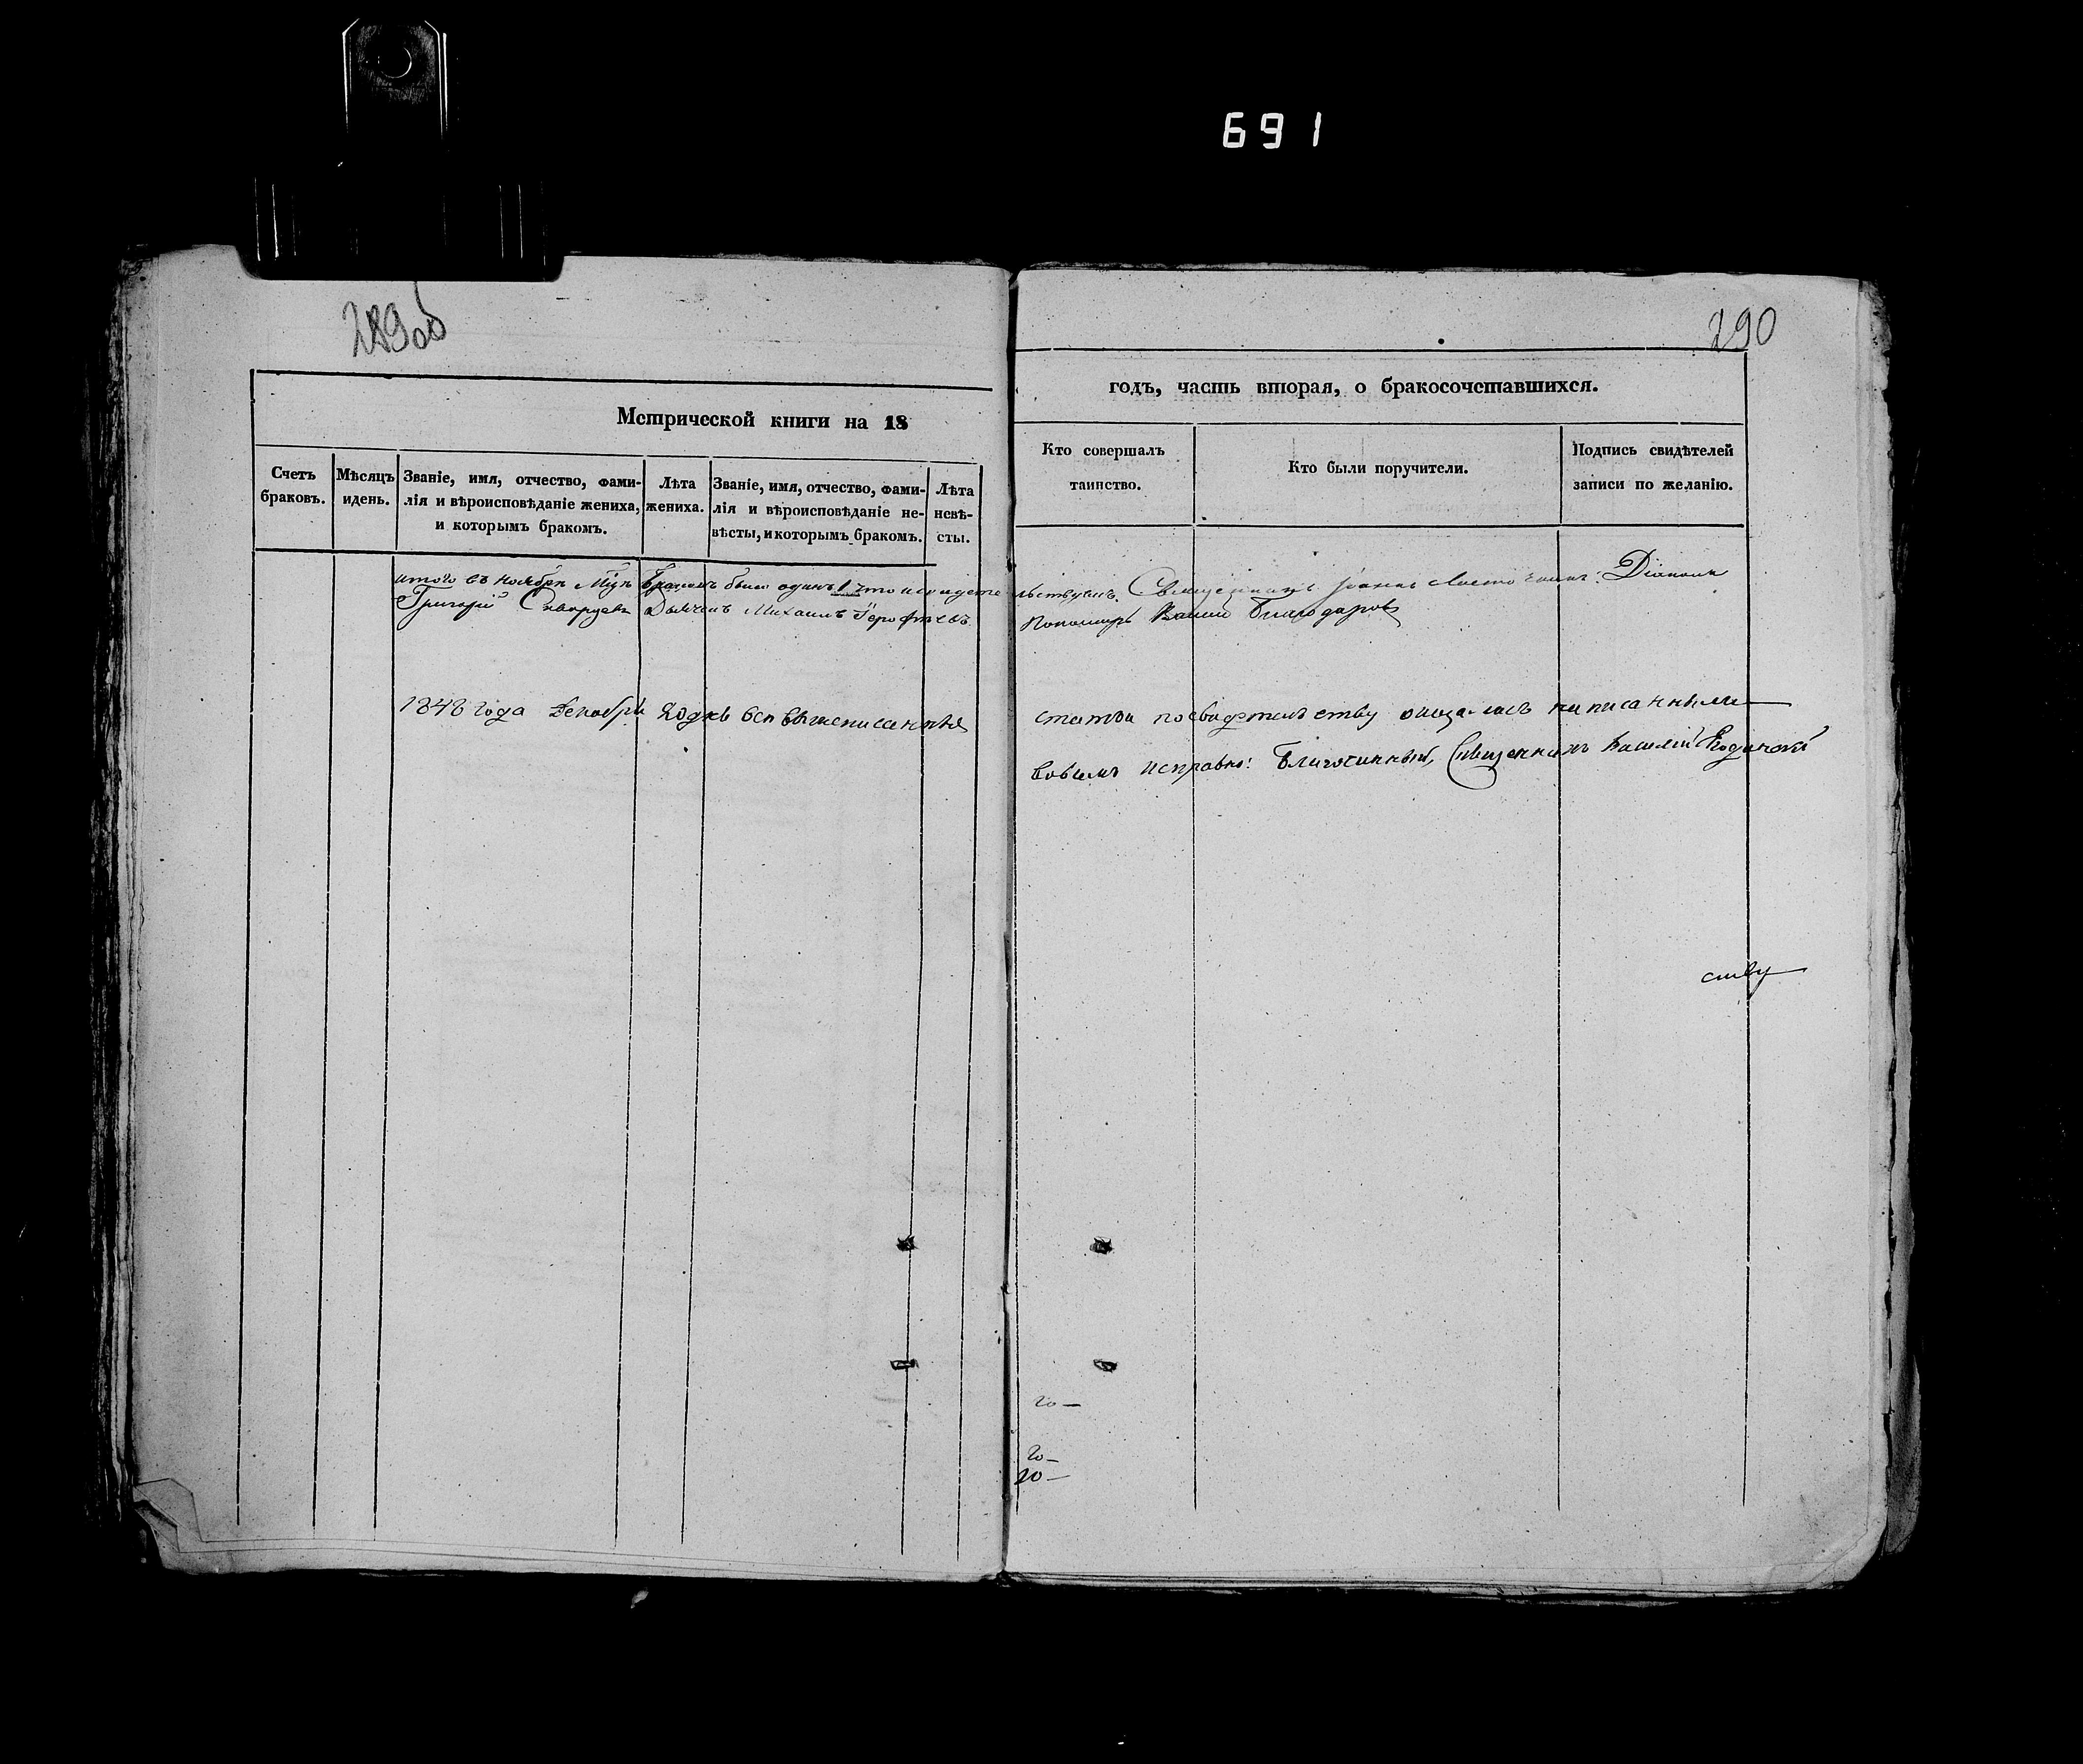 691
289об
290
Метрической книги на 18
годъ, часть вторая, о бракосочетавшихся.
Счетъ браковъ.
Мѣсяцъ и день.
Званіе, имя, отчество, фами-
лія и вѣроисповѣданіе жениха,
и которымъ бракомъ.
Лѣта
жениха.
Званіе, имя, отчество, фами-
лія и вѣроисповѣданіе не-
вѣсты, и которымъ бракомъ.
Лѣта
невѣ-
сты.
Кто совершалъ
таинство.
Кто были поручители.
Подпись свидѣтелей
записи по желанію.
итого въ ноябрѣ Мцѣ браковъ было одинъ 1 что и свидѣте льствуемъ. Священникъ Іоаннъ Діаконъ
Григорій Дьячекъ Михаилъ Ерофѣевъ Пономарь Благодаровъ
1848 года Декабря 20 дня всѣ вышеписанныя статьи по свидѣтельству оказались написанными
вовсемъ исправно: Благочинный, Священникъ Василій
ству
20 —
20 —
20 —